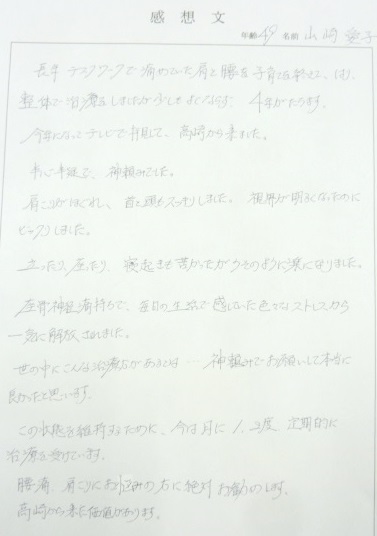 感想文
年齢 49 名前 山崎 愛子
長年デスクワークで痛めていた肩と腰を子育てを終え、
整体で治療をしましたが少しもよくならず 4年がたちます。
今年になってテレビで拝見して、高崎から来ました。
半心半疑で、神頼みでした。
肩こりがほぐれ、首と頭もスッキリしました。視界が明るくなったのに
ビックリしました。
立ったり、座たり、寝起きも苦痛だったがうそのように楽になりました。
座骨神経痛持ちで、毎日の生活で感じていた色々なストレスから
一気に解放されました。
世の中にこんな治療方があるとは… 神頼みでお願いして本当に
良かったと思います。
この状態を維持するために、今は月に1、2度 定期的に
治療を受けています。
腰痛、肩こりにお悩みの方に絶対お勧めします。
高崎から来た価値があります。